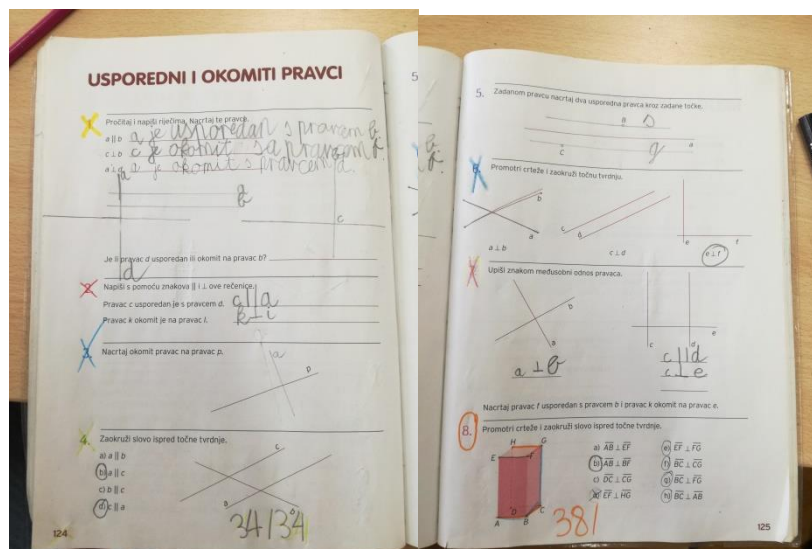 USPOREDNI I OKOMITI PRAVCI
Pročitaj i napiši riječima. Nacrtaj te pravce.
a || b a je usporedan s pravcem b.
c ⊥ b c je okomit sa pravcem
a ⊥ a je okomit s pravcem d.
a
b
c
Je li pravac d usporedan ili okomit na pravac b?
d
2. Napiši s pomoću znakova || i ⊥ ove rečenice.
Pravac c usporedan je s pravcem d.
Pravac k okomit je na pravac i. k ⊥ i
3. Nacrtaj okomit pravac na pravac p.
a
p
4. Zaokruži slovo ispred točne tvrdnje.
a) a || b
b) a || c
c) b || c
d) c || a
c
34/34
124
5
5. Zadanom pravcu nacrtaj dva usporedna pravca kroz zadane točke.
B
a
C
Promotri crteže i zaokruži točnu tvrdnju.
b
a
a ⊥ b
c
d
c ⊥ d
e
f
e ⊥ f
Upiši znakom međusobni odnos pravaca.
b
a
a ⊥ b
c
d
e
c || d
c ⊥ e
Nacrtaj pravac f usporedan s pravcem b i pravac k okomit na pravac e.
8. Promotri crteže i zaokruži slovo ispred točne tvrdnje.
H G
E F
D C
A B
a) AB ⊥ EF
b) AB ⊥ BF
c) DC ⊥ CG
EF ⊥ HG
e) EF ⊥ FG
f) BC ⊥ CG
g) BC ⊥ FG
h) BC ⊥ AB
38/
125